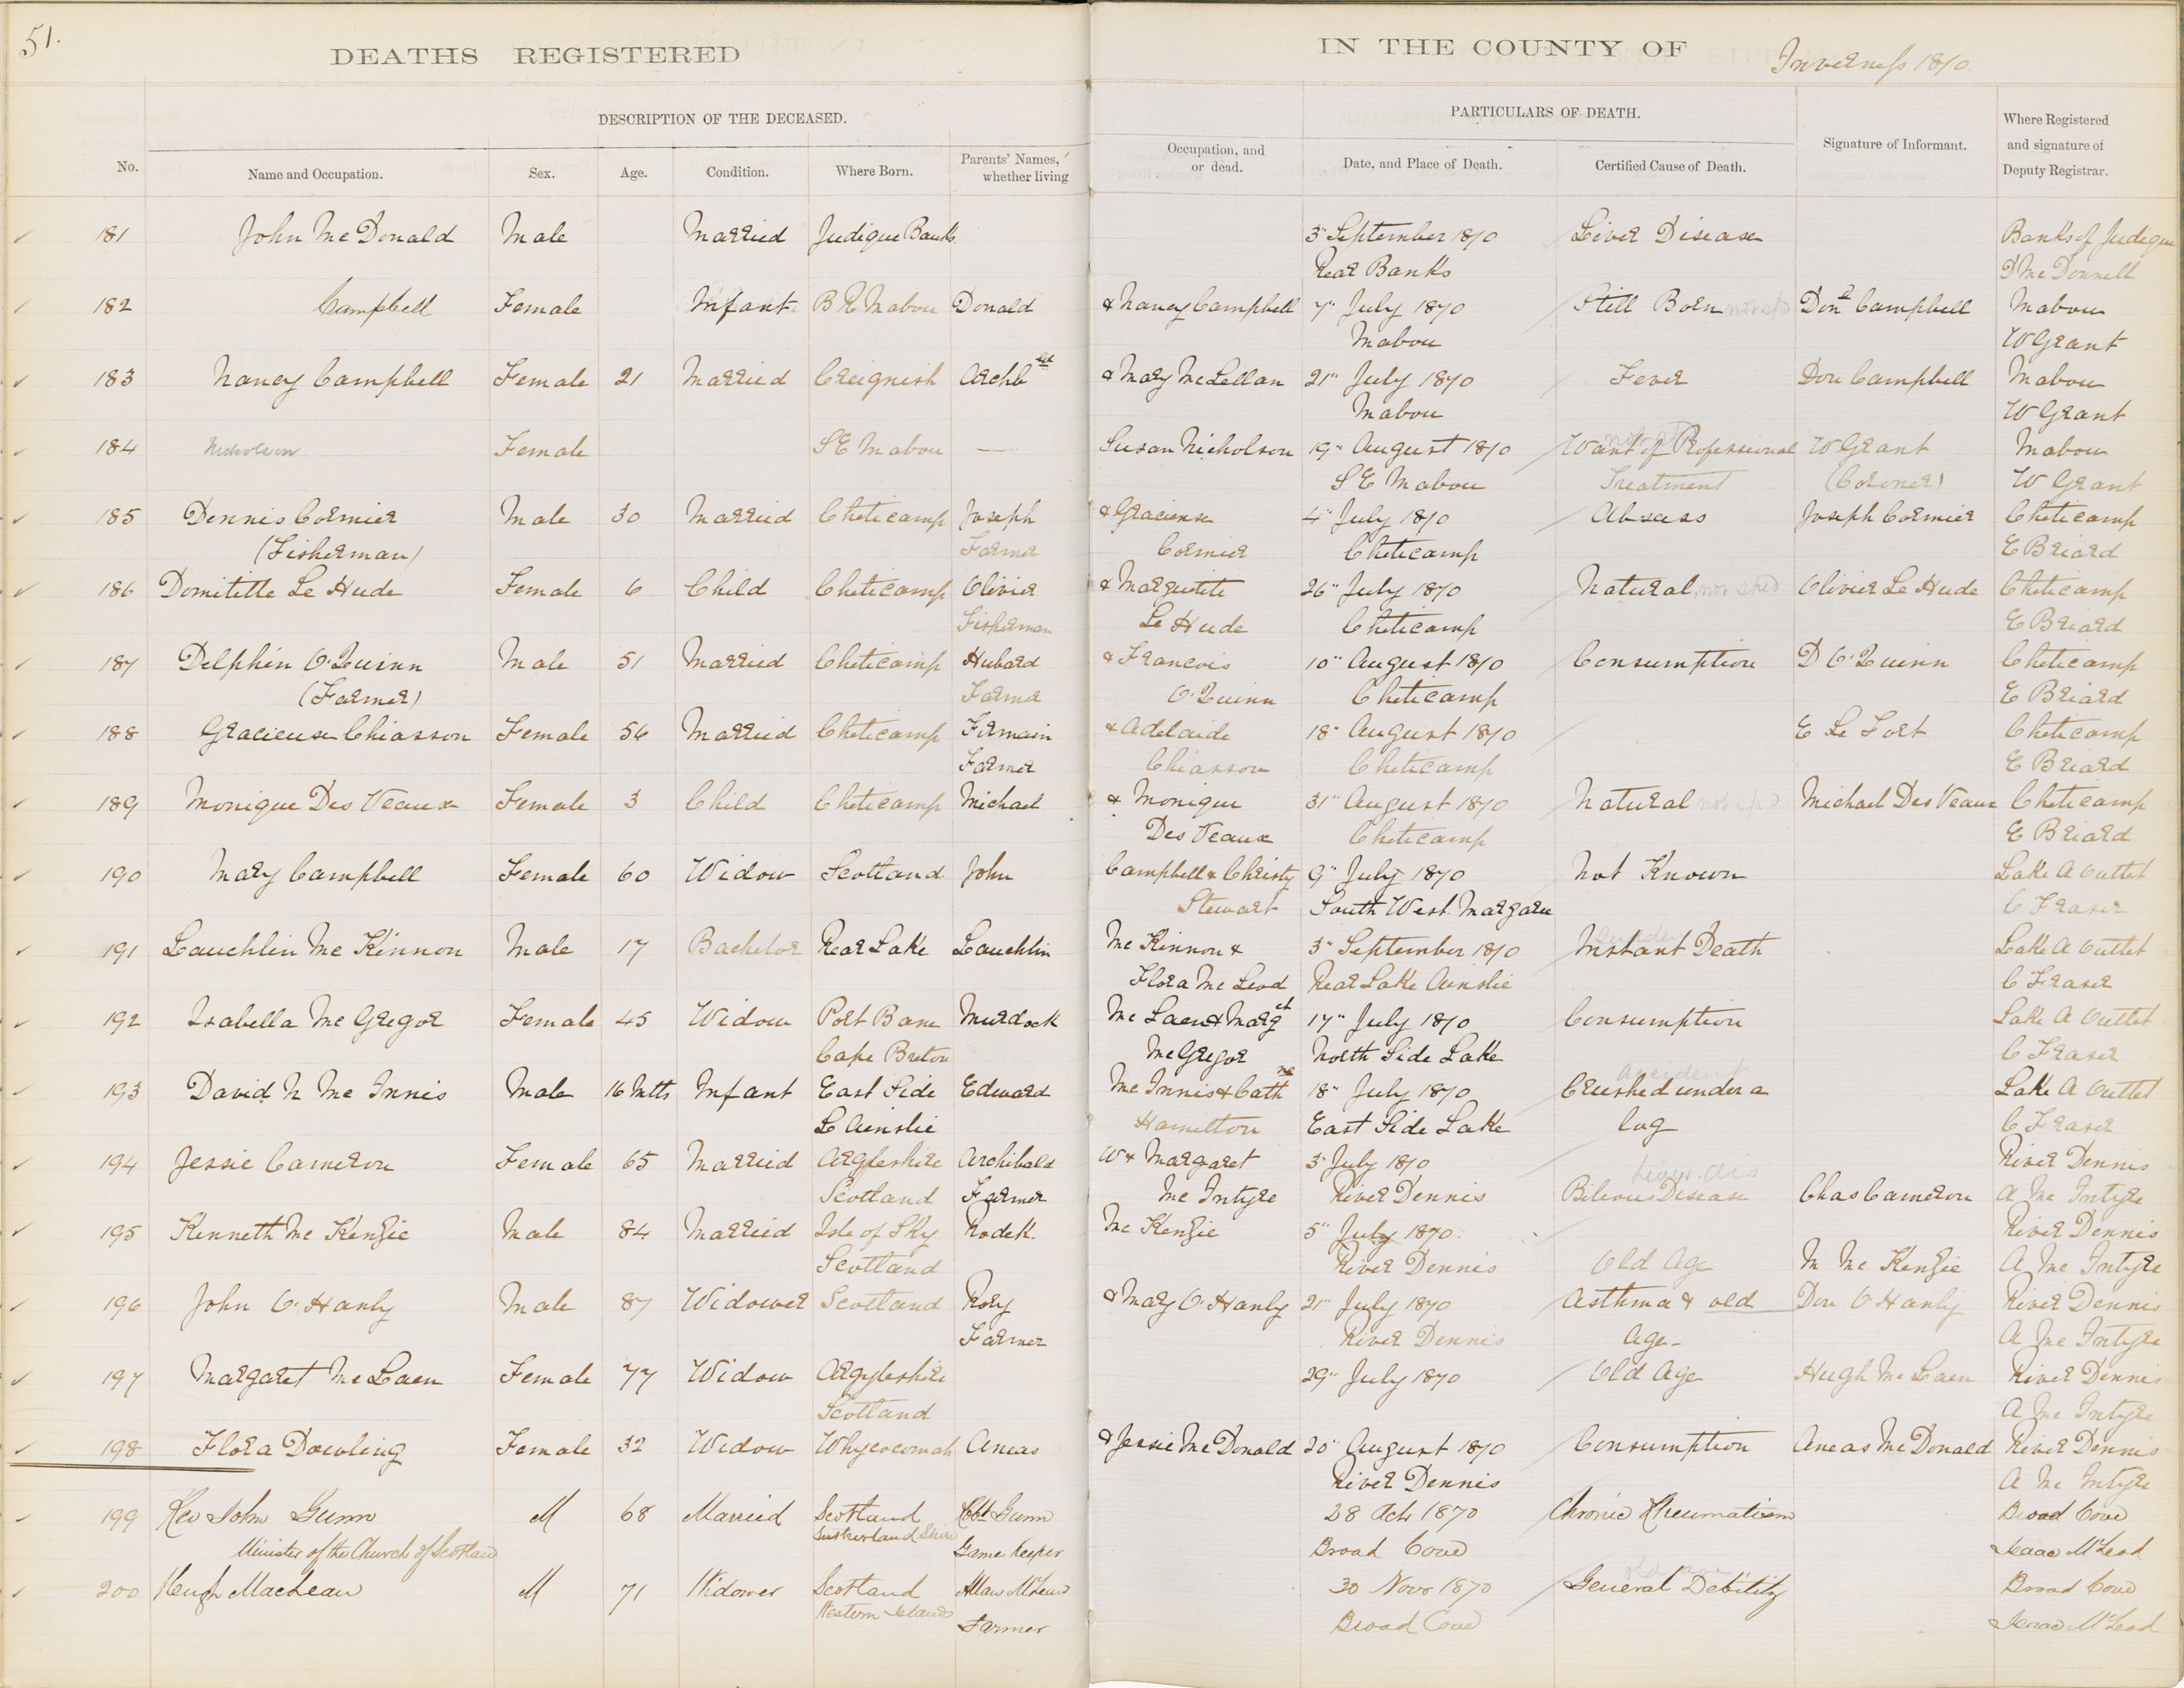 51.
DEATHS REGISTERED IN THE COUNTY OF Inverness 1870.
DESCRIPTION OF THE DECEASED. PARTICULARS OF DEATH.
No. Name and Occupation. Sex. Age. Condition. Where Born. Parents' Names, whether living Occupation, and or dead. Date, and Place of Death. Certified Cause of Death. Signature of Informant. Where Registered and signature of Deputy Registrar.
181 John McDonald Male Married Judique Banks 3" September 1870 Liver Disease Banks of Judique
Rear Banks D McDonnell
182 Campbell Female Infant B R Mabou Donald & Nancy Campbell 7" July 1870 Still Born Don d Campbell Mabou
Mabou W Grant
183 Nancy Campbell Female 21 Married Creignish Archb ld & Mary McLellan 21" July 1870 Fever Don Campbell Mabou
Mabou W Grant
184 Nicholson Female S E Mabou — Susan Nicholson 19" August 1870 Want of Professional W Grant Mabou
S E Mabou Treatment (Coroner) W Grant
185 Dennis Cormier Male 30 Married Cheticamp Joseph & Gracieuse 4" July 1870 Abscess Joseph Cormier Cheticamp
(Fisherman) Farmer Cormier Cheticamp E Briard
186 Domitille Le Hude Female 6 Child Cheticamp Olivier & Marguetite 26" July 1870 Natural Olivier Le Hude Cheticamp
Fisherman Le Hude Cheticamp E Briard
187 Delphin O'Quinn Male 51 Married Cheticamp Hubard & Francois 10" August 1870 Consumption D O'Quinn Cheticamp
(Farmer) Farmer O'Quinn Cheticamp E Briard
188 Gracieuse Chiasson Female 56 Married Cheticamp Firmain & Adelaide 18" August 1870 E Le Fort Cheticamp
Farmer Chiasson Cheticamp E Briard
189 Monique Des Veaux Female 3 Child Cheticamp Michael & Monique 31" August 1870 Natural Michael Des Veaux Cheticamp
Des Veaux Cheticamp E Briard
190 Mary Campbell Female 60 Widow Scotland John Campbell & Christy 9" July 1870 Not Known Lake A Outlet
Stewart South West Margaree C Fraser
191 Lauchlin McKinnon Male 17 Bachelor Rear Lake Lauchlin McKinnon & 3" September 1870 Instant Death Lake A Outlet
Flora McLeod Rear Lake Ainslie C Fraser
192 Isabella McGregor Female 45 Widow Port Bane Murdock McLaen & Marg et 17" July 1870 Consumption Lake A Outlet
Cape Breton McGregor North Side Lake C Fraser
193 David N McInnis Male 16 Mtts Infant East Side Edward McInnis & Cath ne 18" July 1870 Accident Crushed under a Lake A Outlet
L Ainslie Hamilton East Side Lake log C Fraser
194 Jessie Cameron Female 65 Married Argyleshire Archibald W & Margaret 3" July 1870 Liver dis River Dennis
Scotland Farmer McIntyre River Dennis Bilious Disease Chas Cameron A McIntyre
195 Kenneth McKenzie Male 84 Married Isle of Sky Rodek. McKenzie 5" July 1870 River Dennis
Scotland River Dennis Old Age M McKenzie A McIntyre
196 John O'Hanly Male 87 Widower Scotland Rory & Mary O'Hanly 21" July 1870 Asthma & old Don O'Hanly River Dennis
Farmer River Dennis Age A McIntyre
197 Margaret McLaen Female 77 Widow Argyleshire 29" July 1870 Old Age Hugh McLaen River Dennis
Scotland A McIntyre
198 Flora Dowling Female 32 Widow Whycocomah Aneas & Jessie McDonald 20" August 1870 Consumption Aneas McDonald River Dennis
River Dennis A McIntyre
199 Rev John Gunn M 68 Married Scotland Robt Gunn 28 Oct 1870 Chronic Rheumatism Broad Cove
Minister of the Church of Scotland Sutherland Shire Game Keeper Broad Cove Isaac McLeod
200 Hugh MacLean M 71 Widower Scotland Allan McLean 30 Novr 1870 General Debility Broad Cove
Western Islands Farmer Broad Cove Isaac McLeod